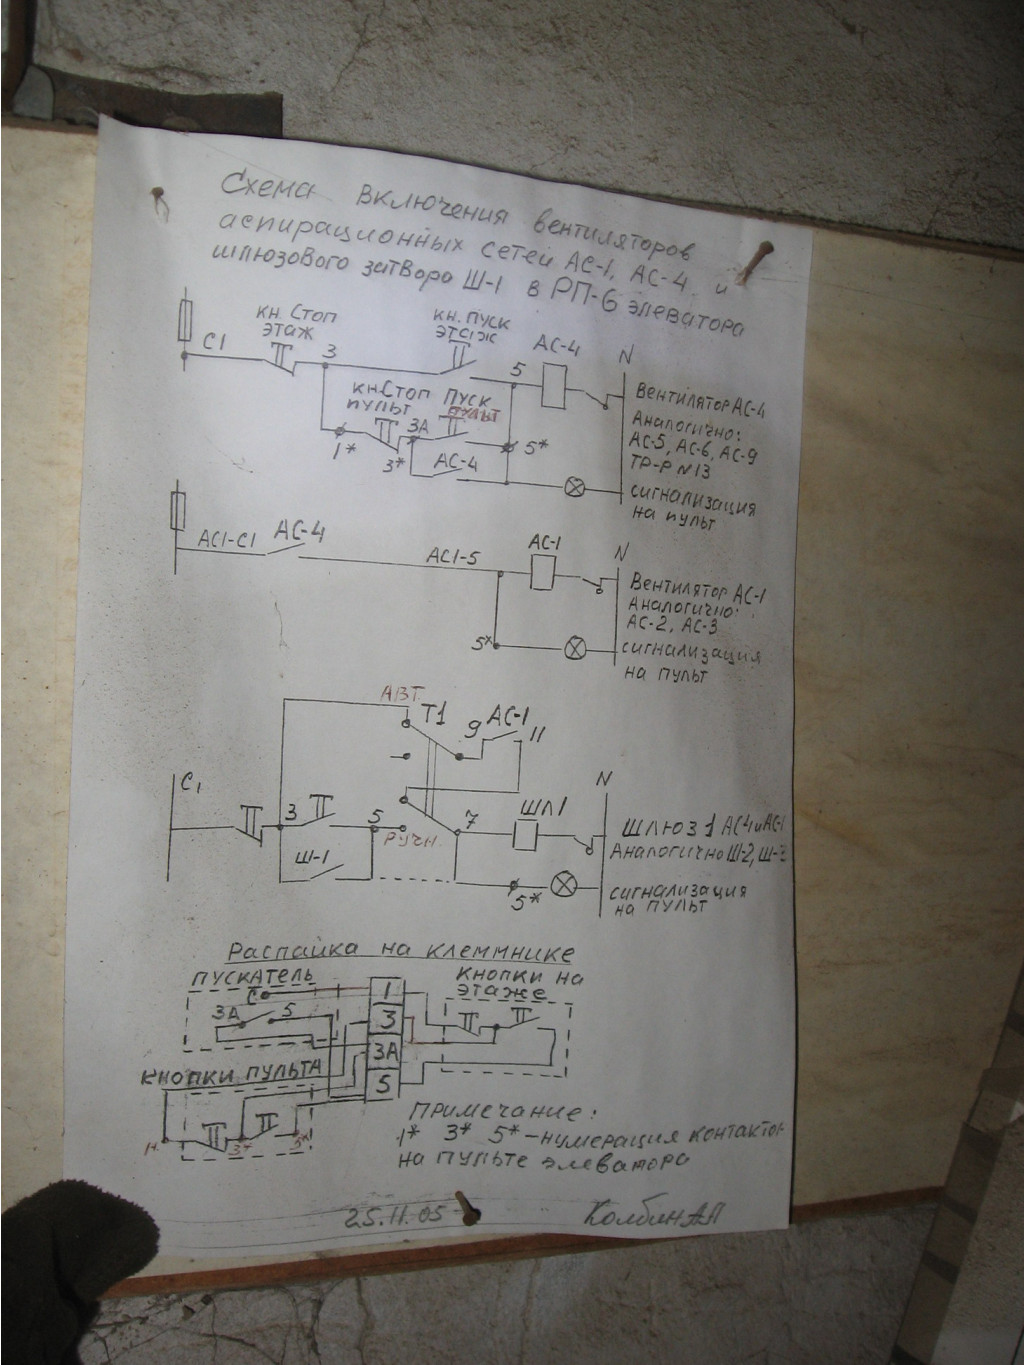 Схема включения вентиляторов
аспирационных сетей АС-1, АС-4 и
шлюзового затвора Ш-1 в РП-6 элеватора
кн. Стоп
этаж
кн. пуск
этаж
С1
3
5
АС-4
N
кн.Стоп
пульт
Пуск
пульт
1*
3*
3А
5*
АС-4
Вентилятор АС-4
Аналогично:
АС-5, АС-6, АС-9
ТР-Р N13
сигнализация
на пульт
АС1-С1
АС-4
АС1-5
АС-1
N
5*
Вентилятор АС-1
Аналогично:
АС-2, АС-3
сигнализация
на пульт
АВТ.
Т1
9
АС-1
11
С1
3
5
РУЧН
7
ШЛ1
N
Ш-1
5*
Шлюз 1 АС4 и АС-1
Аналогично Ш-2, Ш-3
сигнализация
на пульт
Распайка на клеммнике
Пускатель
С
3А
5
1
3
3А
5
Кнопки на
этаже
Кнопки пульта
1*
3*
5*
Примечание:
1* 3* 5* - нумерация контактов
на пульте элеватора
25.11.05
Колбин АП